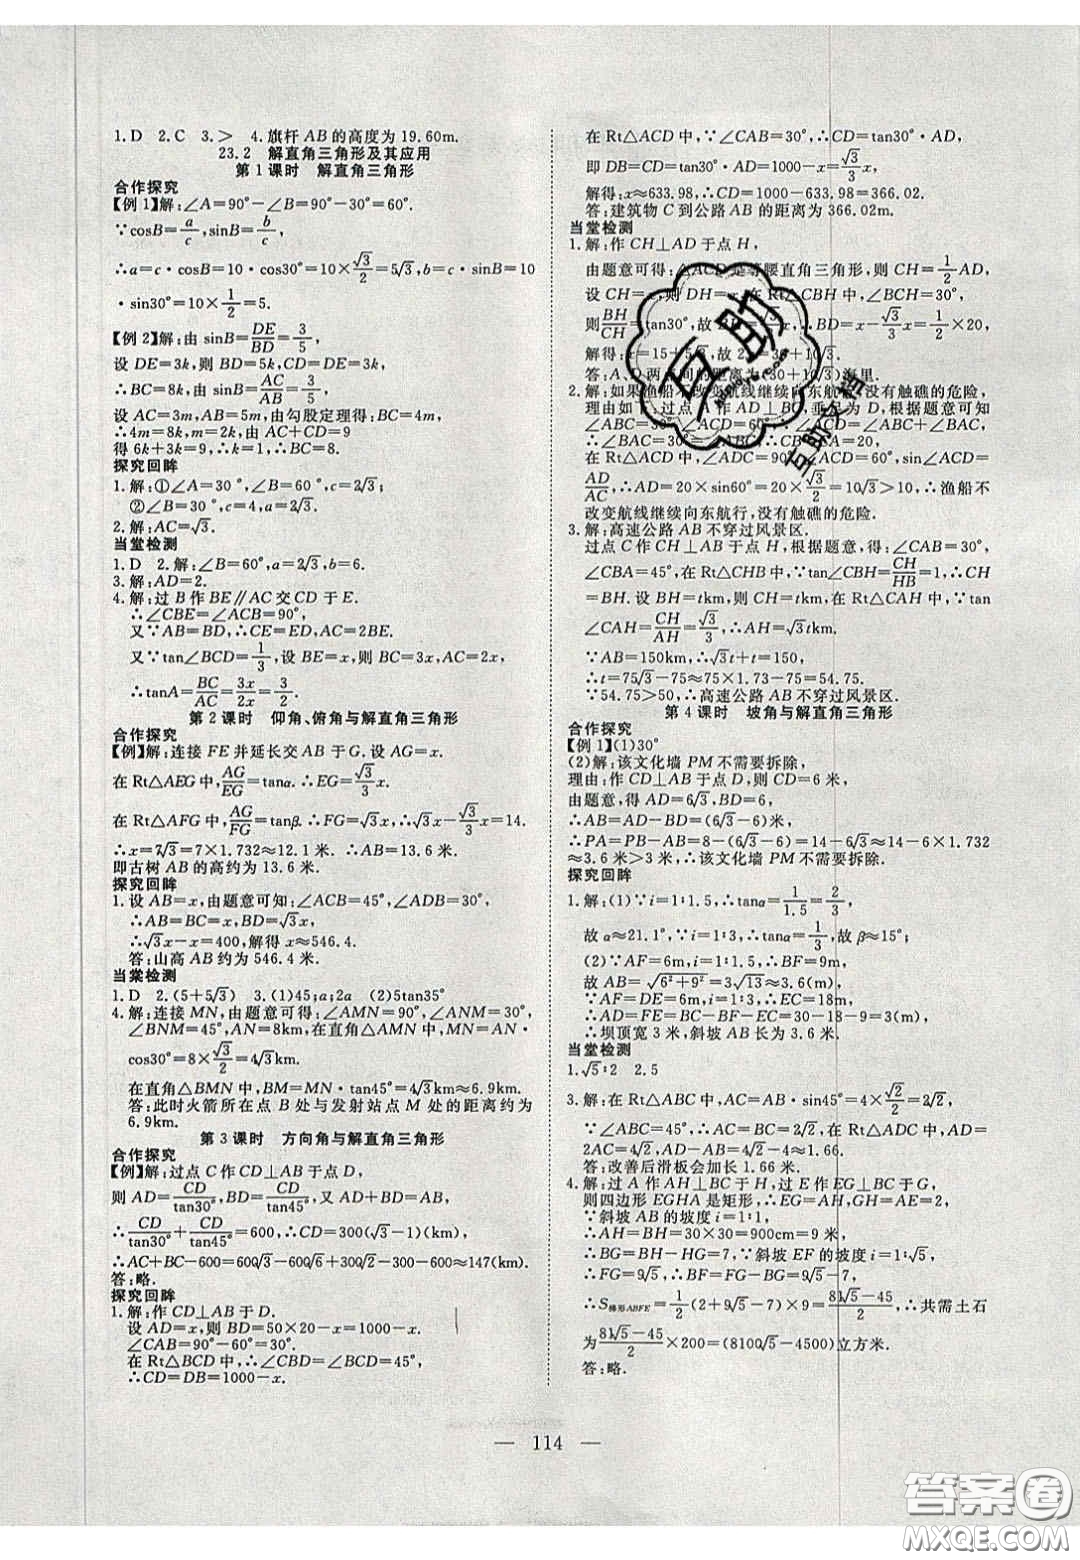 1.D 2.C 3.> 4.旗杆 AB 的高度为 19.60m.
23.2 解直角三角形及其应用
第 1 课时 解直角三角形
合作探究
【例 1】解:∠A=90°-∠B=90°-30°=60°.
∵cosB=a/c,sinB=b/c,
∴a=c·cosB=10·cos30°=10×√3/2=5√3,b=c·sinB=10
·sin30°=10×1/2=5.
【例 2】解:由 sinB=DE/BD=3/5,
设 DE=3k,则 BD=5k,CD=DE=3k,
∴BC=8k,由 sinB=AC/AB=3/5,
设 AC=3m,AB=5m,由勾股定理得:BC=4m,
∴4m=8k,m=2k,由 AC+CD=9
得 6k+3k=9,∴k=1,∴BC=8.
探究回眸
1.解:①∠A=30°,∠B=60°,c=2√3;
②∠B=30°,c=4,a=2√3.
2.解:AC=√3.
当堂检测
1.D 2.解:∠B=60°,a=2√3,b=6.
3.解:AD=2.
4.解:过 B 作 BE∥AC 交 CD 于 E.
∴∠CBE=∠ACB=90°.
又∵AB=BD,∴CE=ED,AC=2BE.
又∵tan∠BCD=1/3,设 BE=x,AC=2x,
∴tanA=BC/AC=3x/2x=3/2.
第 2 课时 仰角、俯角与解直角三角形
合作探究
【例】解:连接 FE 并延长交 AB 于 G,设 AG=x.
在 Rt△AEG 中,AG/EG=tanα.∴EG=√3/3x.
在 Rt△AFG 中,AG/FG=tanβ.∴FG=√3x,∴√3x-√3/3x=14.
∴x=7√3=7×1.732≈12.1 米.∴AB=13.6 米.
即古树 AB 的高约为 13.6 米.
探究回眸
1.设 AB=x,由题意可知:∠ACB=45°,∠ADB=30°,
∴AB=BC=x,BD=√3x,
∴√3x-x=400,解得 x≈546.4.
答:山高 AB 约为 546.4 米.
当棠检测
1.D 2.(5+5√3) 3.(1)45;a;2a (2)5tan35°
4.解:连接 MN,由题意可得:∠AMN=90°,∠ANM=30°,
∠BNM=45°,AN=8km,在直角△AMN 中,MN=AN·
cos30°=8×√3/2=4√3km.
在直角△BMN 中,BM=MN·tan45°=4√3km≈6.9km.
答:此时火箭所在点 B 处与发射站点 M 处的距离约为
6.9km.
第 3 课时 方向角与解直角三角形
合作探究
【例】解:过点 C 作 CD⊥AB 于点 D,
则 AD=CD/tan30°,BD=CD/tan45°,又 AD+BD=AB,
∴CD/tan30°+CD/tan45°=600,∴CD=300(√3-1)(km)
∴AC+BC-600=600√3-600√6+300√2-600≈147(km).
答:略.
探究回眸
1.解:作 CD⊥AB 于 D.
设 AD=x,则 BD=50×20-x=1000-x.
∠CAB=90°-60°=30°.
在 Rt△BCD 中,∴∠CBD=∠BCD=45°,
∴CD=DB=1000-x.
在 Rt△ACD 中,∵∠CAB=30°,∴CD=tan30°·AD,
即 DB=CD=tan30°·AD=1000-x=√3/3x,
解得:x≈633.98,∴CD=1000-633.98=366.02.
答:建筑物 C 到公路 AB 的距离为 366.02m.
当堂检测
1.解:作 CH⊥AD 于点 H,
由题意可得:△ACD 是等腰直角三角形,则 CH=1/2AD,
设 CH=x,则 DH=x,在 Rt△CBH 中,∠BCH=30°,
则BH/CH=tan30°,故 BH=√3/3x,∴BD=x-√3/3x=1/2×20,
解得:x=15+5√3,故 2x=30+10√3.
答:A、D 两点间的距离为(30+10√3)海里.
2.解:如果渔船不改变航线继续向东航行,没有触礁的危险,
理由如下:过点 A 作 AD⊥BC,垂足为 D,根据题意可知
∠ABC=30°,∠ACD=60°,∵∠ACD=∠ABC+∠BAC,
∴∠BAC=30°=∠ABC,∴CB=CA=20,
在 Rt△ACD 中,∠ADC=90°,∠ACD=60°,sin∠ACD=
AD/AC,∴AD=20×sin60°=20×√3/2=10√3>10,∴渔船不
改变航线继续向东航行,没有触礁的危险.
3.解:高速公路 AB 不穿过风景区.
过点 C 作 CH⊥AB 于点 H,根据题意,得:∠CAB=30°,
∠CBA=45°,在 Rt△CHB 中,∵tan∠CBH=CH/HB=1,∴CH
=BH.设 BH=tkm,则 CH=tkm,在 Rt△CAH 中,∵tan
∠CAH=CH/AH=√3/3,∴AH=√3tkm.
∵AB=150km,∴√3t+t=150,
∴t=75√3-75≈75×1.73-75=54.75.
∵54.75>50,∴高速公路 AB 不穿过风景区.
第 4 课时 坡角与解直角三角形
合作探究
【例 1】(1)30°
(2)解:该文化墙 PM 不需要拆除.
理由:作 CD⊥AB 于点 D,则 CD=6 米,
由题意,得 AD=6√3,BD=6,
∴AB=AD-BD=(6√3-6)米,
∴PA=PB-AB=8-(6√3-6)=14-6√3≈14-6×1.732
≈3.6 米>3 米,∴该文化墙 PM 不需要拆除.
探究回眸
1.解:(1)∵i=1∶1.5,∴tanα=1/1.5=2/3,
故 α≈21.1°,∵i=1∶3,∴tanα=1/3,故 β≈15°;
(2)∵AF=6m,i=1∶1.5,∴BF=9m,
故 AB=√6²+9²=3√13≈3.6(m),
∵AF=DE=6m,i=1∶3,∴EC=18m,
∴AD=FE=BC-BF-EC=30-18-9=3(m),
∴坝顶宽 3 米,斜坡 AB 长为 3.6 米.
当堂检测
1.√5∶2 2.5
3.解:在 Rt△ABC 中,AC=AB·sin45°=4×√2/2=2√2,
∵∠ABC=45°,∴AC=BC=2√2,在 Rt△ADC 中,
AD=2AC=4√2,AD-AB=4√2-4≈1.66.
答:改善后滑板会加长 1.66 米.
4.解:过 A 作 AH⊥BC 于 H,过 E 作 EG⊥BC 于 G,
则四边形 EGHA 是矩形,∴EG=AH,GH=AE=2,
∵斜坡 AB 的坡度 i=1∶1,
∴AH=BH=30×30=900cm=9 米,
∴BG=BH-HG=7,∵斜坡 EF 的坡度 i=1∶√5,
∴FG=9√5,∴BF=FG-BG=9√5-7,
∴S梯形ABFE=1/2(2+9√5-7)×9=81√5-45/2,∴共需土石
为81√5-45/2×200=(8100√5-4500)立方米.
答:略.
— 114 —
互助
互助文档
答案圈
MXQE.COM